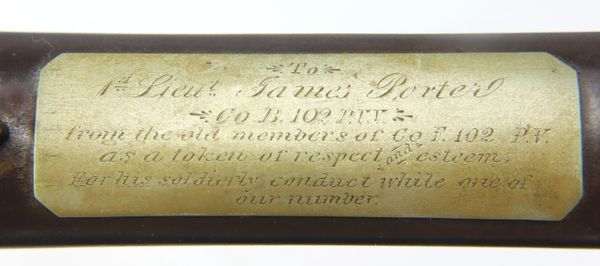 To
1st Lieut James Porter
Co B. 102 P.V.V.
from the old members of Co F. 102 P.V.
as a token of respect and esteem.
For his soldierly conduct while one of
our number.